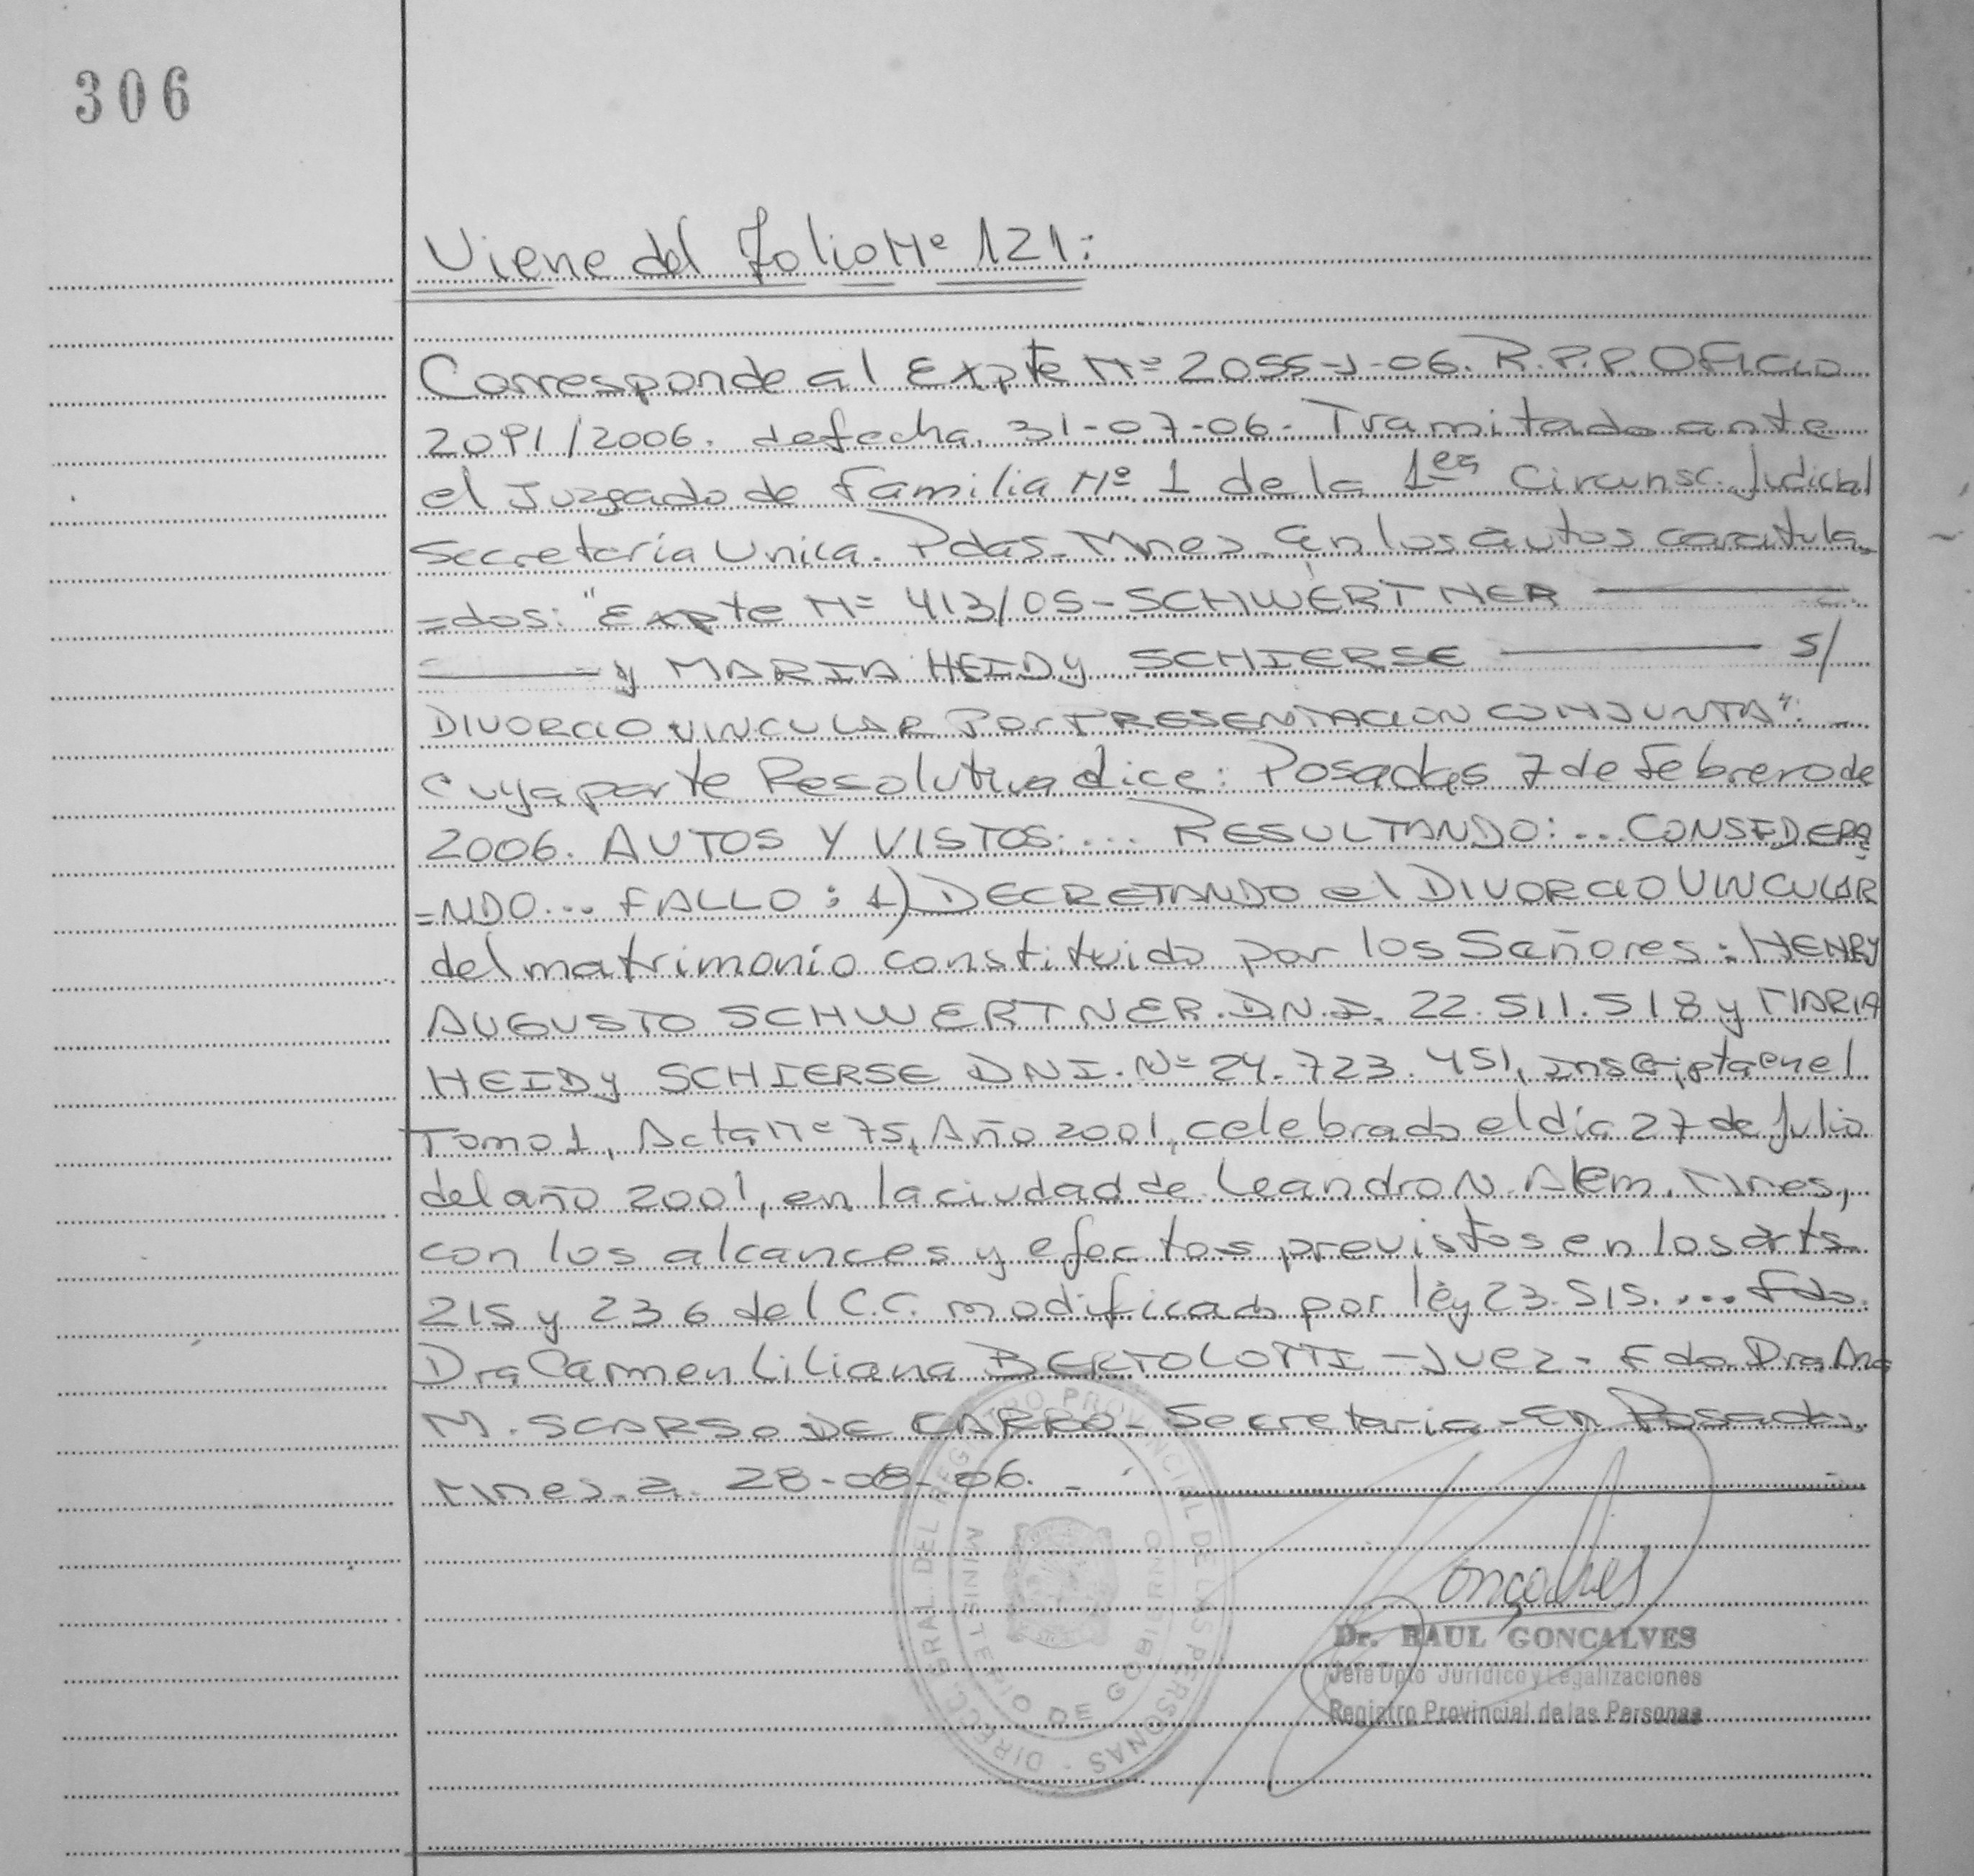 306
Viene del folio Nº 121:
Corresponde al Expte Nº 2055-J-06. R.P.P. OFICIO
2091/2006. de fecha 31-07-06. Tramitado ante
el Juzgado de Familia Nº 1 de la 1era Circunsc. Judicial
Secretaría Unica. Pdas. Mnes. En los autos caratula
=dos: "Expte Nº 413/05-SCHWERTNER
y MARIA HEIDY SCHIERSE S/
DIVORCIO VINCULAR POR PRESENTACION CONJUNTA".
Cuya parte Resolutiva dice: Posadas 7 de febrero de
2006. AUTOS Y VISTOS:... RESULTANDO:... CONSIDERA
=NDO... FALLO: 1) DECRETANDO el DIVORCIO VINCULAR
del matrimonio constituido por los Señores: HENRY
AUGUSTO SCHWERTNER. D.N.I. 22.511.518 y MARIA
HEIDY SCHIERSE DNI. Nº 24.723.451, inscripta en el
Tomo 1, Acta Nº 75, Año 2001, celebrado el día 27 de Julio
del año 2001, en la ciudad de Leandro N. Alem. Mnes,
con los alcances y efectos previstos en los arts
215 y 236 del C.C. modificado por ley 23.515.... Fdo.
Dra Carmen Liliana BERTOLOTTI - Juez - Fdo Dra Ana
M. SCARSO DE CARBO - Secretaria - En Posadas.
Mnes. a 28-08-06.
DIRECC. GRAL. DEL REGISTRO PROVINCIAL DE LAS PERSONAS
MINISTERIO DE GOBIERNO
Gonçalves
Dr. RAUL GONCALVES
Jefe Dpto Jurídico y Legalizaciones
Registro Provincial de las Personas